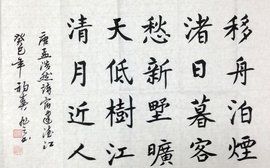 移舟泊煙
渚日暮客
愁新墅曠
天低樹江
清月近人
唐孟浩然詩宿建德江
癸巳年